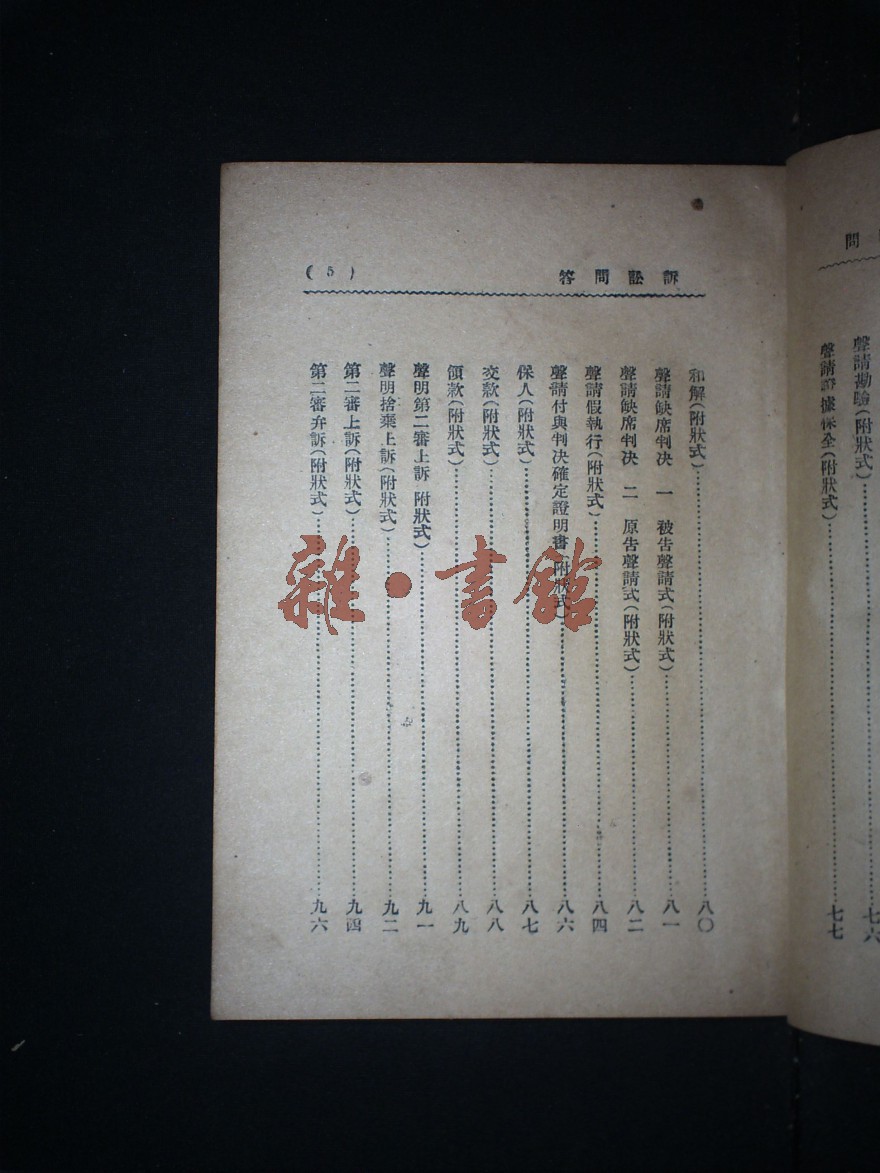 問
聲請勘驗(附狀式)……七六
聲請證據保全(附狀式)……七七
訴訟問答
(5)
和解(附狀式)……八〇
聲請缺席判决 一 被告聲請式(附狀式)……八一
聲請缺席判决 二 原告聲請式(附狀式)……八二
聲請假執行(附狀式)……八四
聲請付與判决確定證明書(附狀式)……八六
保人(附狀式)……八七
交款(附狀式)……八八
領款(附狀式)……八九
聲明第二審上訴 附狀式)……九一
聲明捨棄上訴(附狀式)……九二
第二審上訴(附狀式)……九四
第二審弁訴(附狀式)……九六
雜·書館